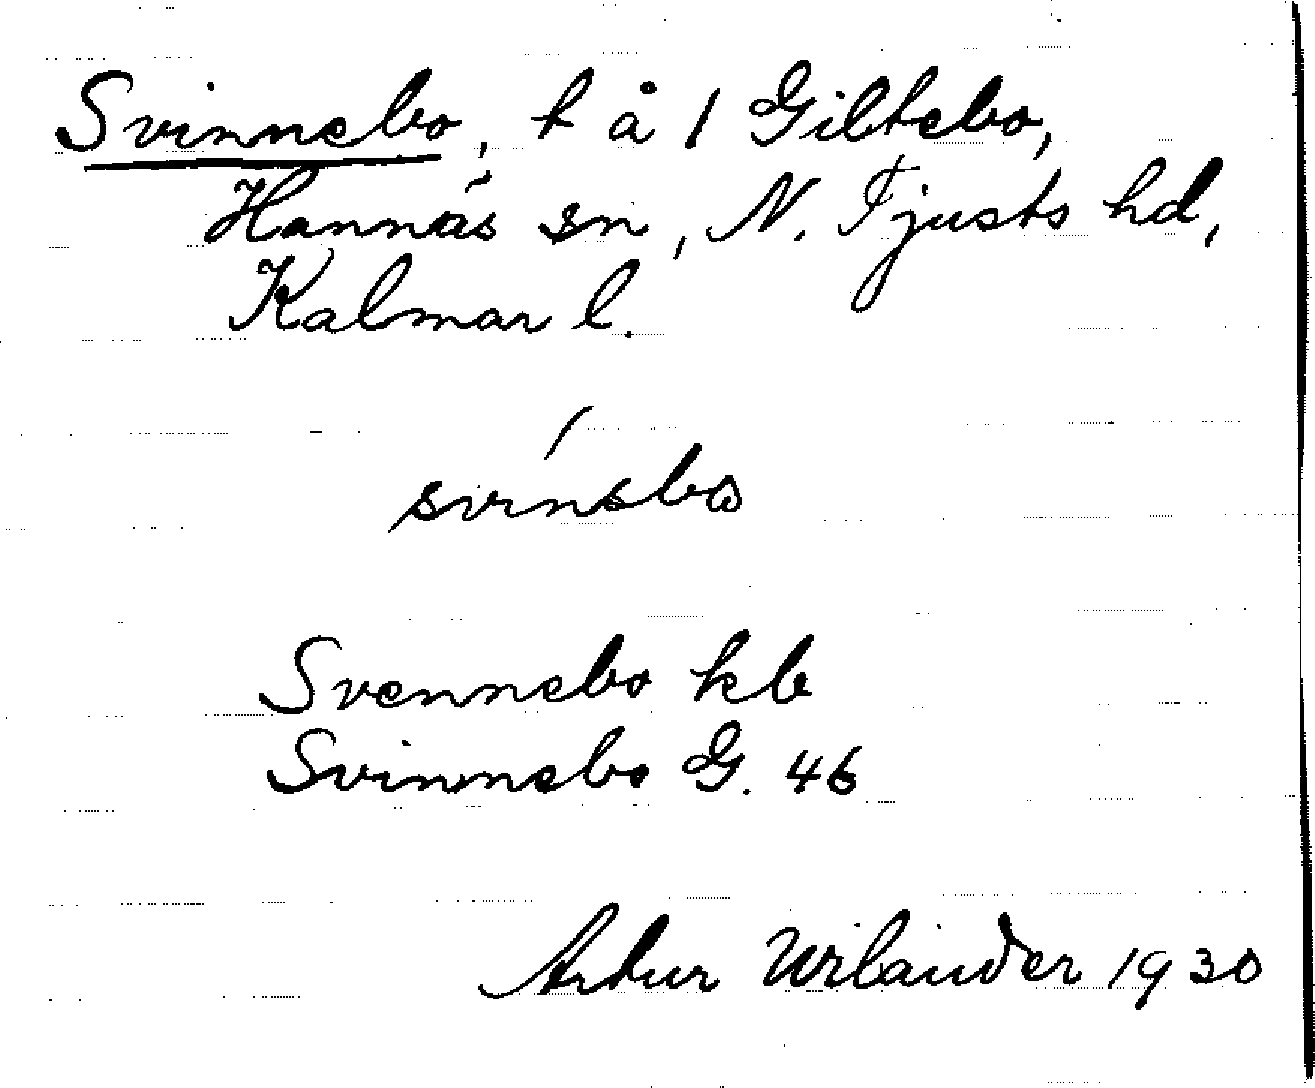 Svinnebo, t å 1 Giltebo,
Hannäs sn, N. Tjusts hd,
Kalmar l.
Svennebo kb
Svinnebo G. 46
Artur Wilander 1930